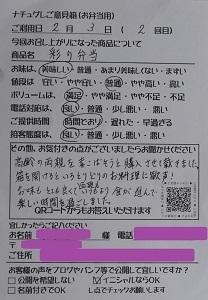 ナチュゲしご意見箱(お弁当用)
ご利用日 2月 3日 ( 2 回目)
今回お召し上がりになった商品について
商品名 彩り弁当
お味は 美味しい・普通・あまり美味しくない・まずい
価格は 安い・やや安い・普通・やや高い・高い
ボリュームは 満足・やや満足・やや不足・不足
電話対応は 良い・普通・少し悪い・悪い
ご提供時間 時間どおり・遅れた・早過ぎる
接客態度は 良い・普通・少し悪い・悪い
その他、お気付きの点がございましたらお聞かせください
高齢の両親を喜ばそうと購入させて戴きました。
箱を開けるといろとりどりのお料理に歓声!
お味もとても良く いつもより 会話 食が進んで、
楽しい時間を過ごしました。
QRコードからもお答えいただけます
宜しかったらご記入ください
お名前 様 電話
ご住所
お客様の声をブログやパンフ等で公開して宜しいですか?
□公開を希望しない ☑イニシャルならOK
□名前付きでOK し点でチェックお願いします